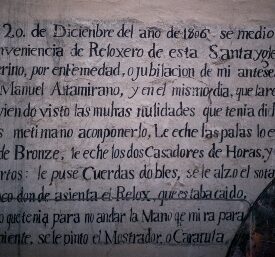 20. de Diciembre del año de 1806. se me dio
nveniencia de Reloxero de esta Santa, yoje
rino, por enfemedad, o jubilacion de mi antese
Manuel Altamirano, y en el mismo dia, que tare
viendo visto las muhas nulidades que tenia di
metimano aconponerlo, Le eche las palas lo e
de Bronze, le eche los dos Casadores de Horas, y
rtos: le puse Cuerdas dobles, se le alzo el sota
co don de asienta el Relox, que estaba caido,
o que tenia para no andar la Mano qe mira para
niente, se le pinto el Mostrador, o Caratula,